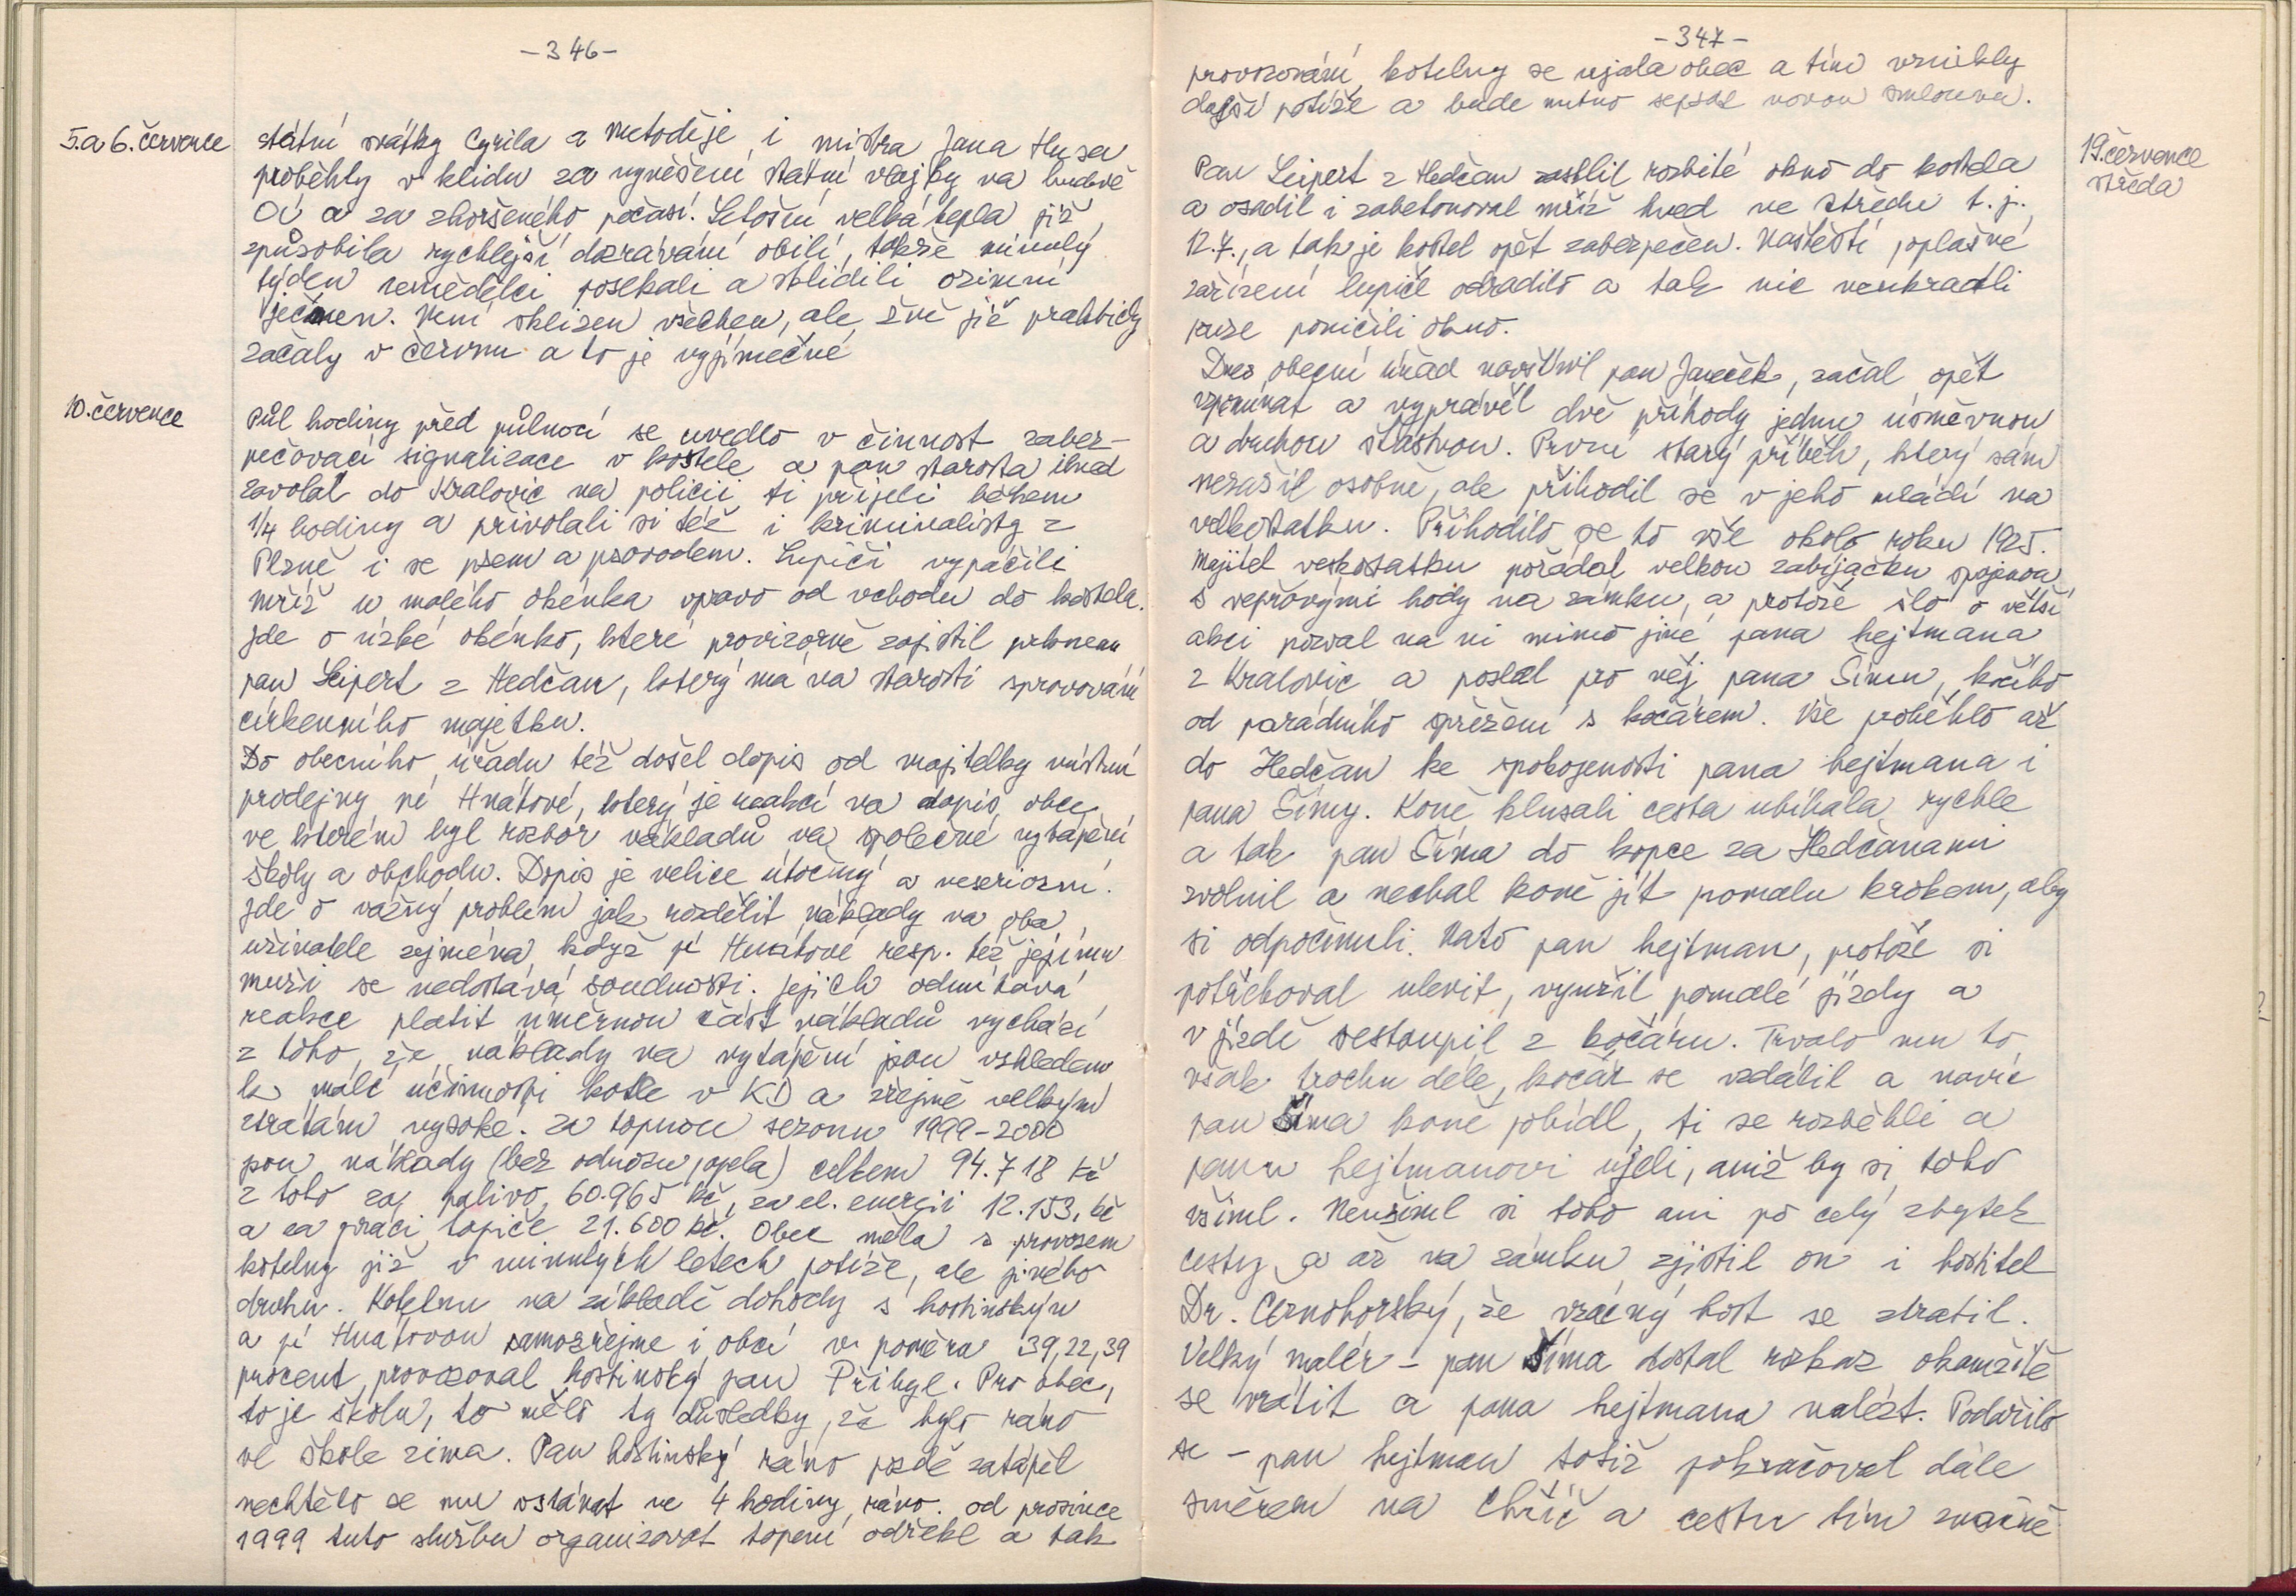 -346-
5.a 6. července
státní svátky Cyrila a Metoděje, i mistra Jana Husa
proběhly v klidu za vyvěšení státní vlajky na budově
OÚ a za zhoršeného počasí. Letošní velká tepla již
způsobila rychlejší dozrávání obilí, takže minulý
týden zemědělci posekali a sklidili ozimní
ječmen. Není sklizen všechen, ale žně již prakticky
začaly v červnu a to je vyjímečné
10. července
Půl hodiny před půlnocí se uvedlo v činnost zabez-
pečovací signalizace v kostele a pan starosta ihned
zavolal do Kralovic na policii, ti přijeli během
1/4 hodiny a přivolali si též i kriminalisty z
Plzně i se psem a psovodem. Lupiči vypáčili
mříž u malého okénka vpravo od vchodu do kostela.
Jde o úzké okénko, které provizorně zajistil prknem
pan Leipert z Hedčan, který má na starosti spravování
církevního majetku.
Do obecního úřadu též došel dopis od majitelky místní
prodejny pí Hnátové, který je reakcí na dopis obce,
ve kterém byl rozbor nákladů na společné vytápění
školy a obchodu. Dopis je velice útočný a neseriozní.
Jde o vážný problém jak rozdělit náklady na oba
uživatele zejména, když pí Hnátové resp. též jejímu
muži se nedostává soudnosti. Jejich odmítavá
reakce platit úměrnou část nákladů vychází
z toho, že náklady na vytápění jsou vzhledem
k malé účinnosti kotle v KD a zřejmě velkým
ztrátám vysoké. Za topnou sezonu 1999-2000
jsou náklady (bez odvozu popela) celkem 94.718 Kč
z toho za palivo 60.965 Kč, za el. energii 12.153, kč
a za práci topiče 21.600 Kč. Obec měla s provozem
kotelny již v minulých letech potíže, ale jiného
druhu. Kotelnu na základě dohody s hostinským
a pí Hnátovou samozřejmě i obcí v poměru 39,22,39
procent provozoval hostinský pan Přibyl. Pro obec,
to je školu, to mělo ty důsledky, že bylo ráno
ve škole zima. Pan hostinský ráno pozdě zatápěl
nechtělo se mu vstávat ve 4 hodiny ráno. od prosince
1999 tuto službu organizovat topení odřekl a tak
-347-
provozování kotelny se ujala obec a tím vznikly
další potíže a bude nutno sepsat novou smlouvu.
19. července
středa
Pan Leipert z Hedčan zasklil rozbité okno do kostela
a osadil i zabetonoval mříž hned ve středu t.j.
12.7., a tak je kostel opět zabezpečen. Naštěstí poplašné
zařízení lupiče odradilo a tak nic neukradli
pouze poničili okno.
Dnes obecní úřad navštívil pan Janeček, začal opět
vzpomínat a vyprávěl dvě příhody jednu úsměvnou
a druhou šťastnou. První starý příběh, který sám
nezažil osobně, ale přihodil se v jeho mládí na
velkostatku. Přihodilo se to vše okolo roku 1925.
Majitel velkostatku pořádal velkou zabijačku spojenou
s vepřovými hody na zámku, a protože šlo o větší
akci pozval na ni mimo jiné pana hejtmana
z Kralovic a poslal pro něj pana Šímu, kočího
od parádního spřežení s kočárem. Vše proběhlo až
do Hedčan ke spokojenosti pana hejtmana i
pana Šímy. Koně klusali cesta ubíhala rychle
a tak pan Šíma do kopce za Hedčanami
zvolnil a nechal koně jít pomalu krokem, aby
si odpočinuli. Nato pan hejtman, protože si
potřeboval ulevit, využil pomalé jízdy a
v jízdě sestoupil z kočáru. Trvalo mu to
však trochu déle, kočár se vzdálil a navíc
pan Šíma koně pobídl, ti se rozběhli a
panu hejtmanovi ujeli, aniž by si toho
všiml. Nevšiml si toho ani po celý zbytek
cesty a až na zámku zjistil on i hostitel
Dr. Cernohorský, že vzácný host se ztratil.
Velký malér - pan Šíma dostal rozkaz okamžitě
se vrátit a pana hejtmana nalézt. Podařilo
se - pan hejtman totiž pokračoval dále
směrem na Chříč a cestu tím značně